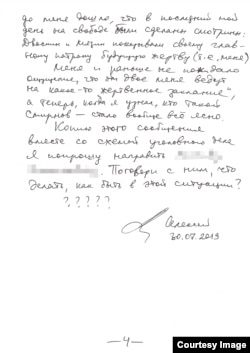 до меня дошло, что в последний мой
день на свободе были сделаны смотрины:
Двоскин и Мязин показывали своему глав-
ному патрону будущую жертву (т.е. меня)
Меня и раньше не покидало
ощущение, что эти двое меня ведут
на какое-то „жертвенное заклание",
а теперь, когда я узнал, кто такой
Смирнов – стало вообще всё ясно.
Копию этого сообщения
вместе со схемой уголовного дела
я попрошу направить
Поговори с ним, что
делать, как быть в этой ситуации?
? ? ? ? ?
30.07.2013
– 4 –
Courtesy Image